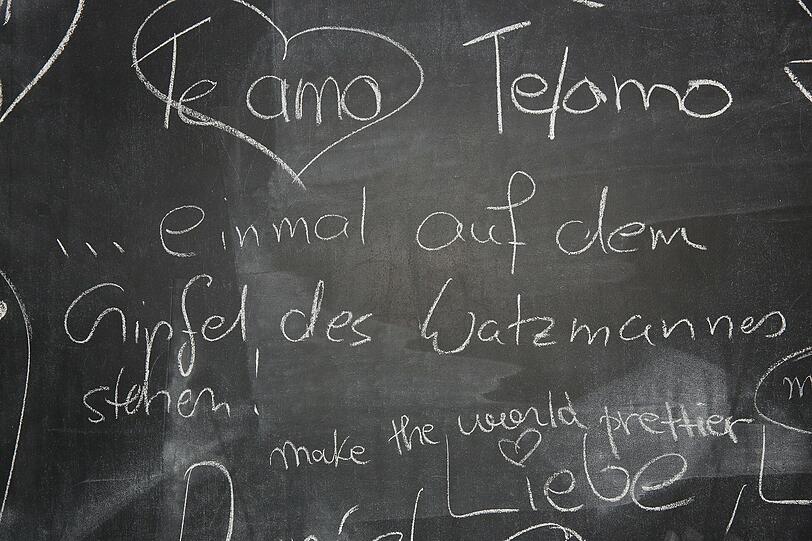 Te amo Te amo
... einmal auf dem
Gipfel des Watzmannes
stehen!
make the world prettier
Liebe,